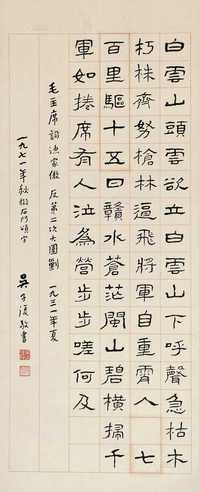 白雲山頭雲欲立白雲山下呼聲急枯木
朽株齊努槍林逼飛將軍自重霄入 七
百里驅十五日贛水蒼茫閩山碧橫掃千
軍如捲席有人泣為營步步嗟何及
毛主席詞漁家傲 反第二次大圍剿 一九三一年夏
一九七一年秋倣石門頌字 吳子復敬書